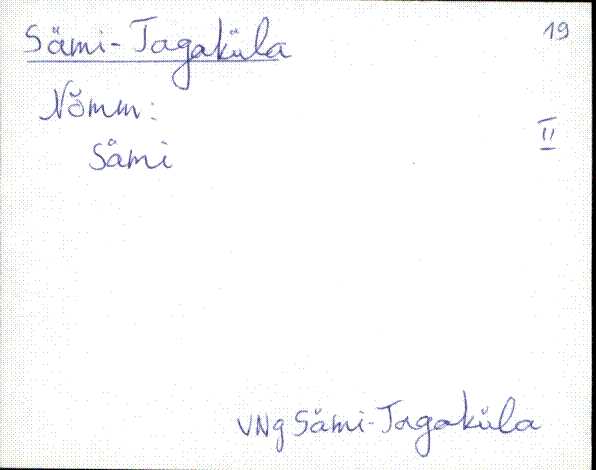 Sämi-Tagaküla
19
Nõmm:
II
Sämi
VNg Sämi-Tagaküla